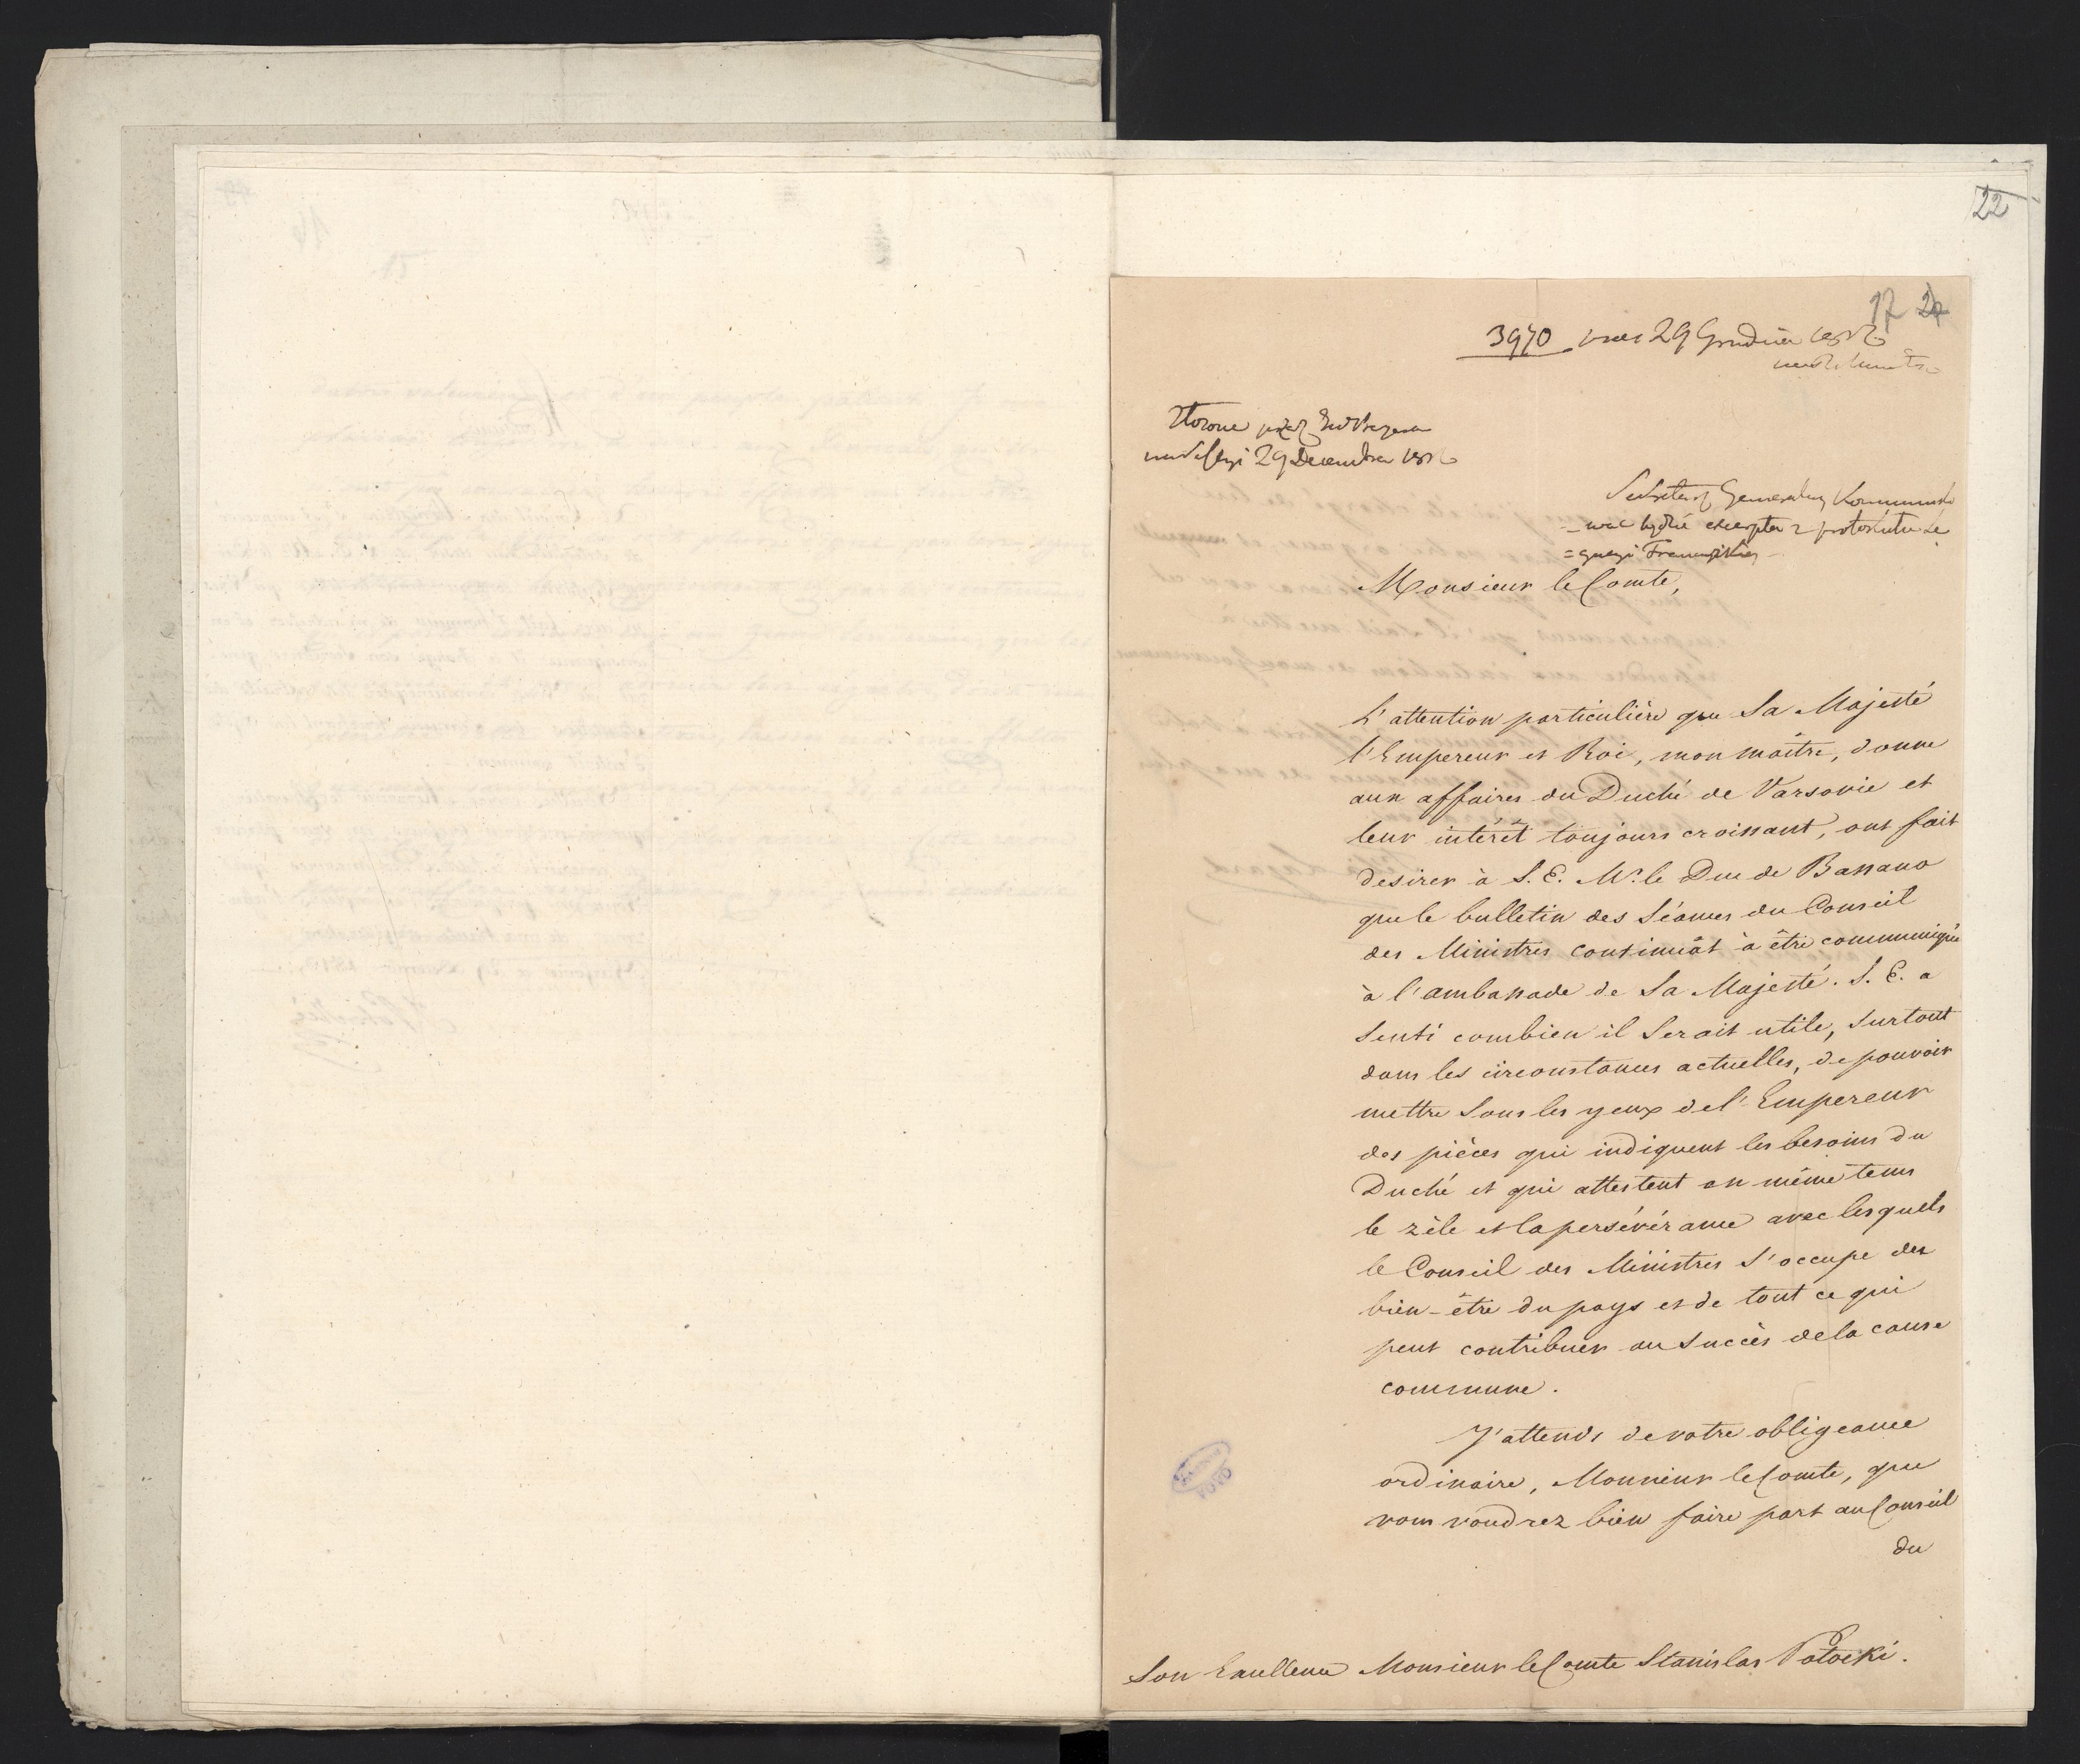 22
17 22
3970 29 Grudnia 1812
29 Decembra 1812
Sekretarz Generalny
excerpta z protokułu
Monsieur le Comte,
L'attention particulière que Sa Majesté
l'Empereur et Roi, mon maître, donne
aux affaires du Duché de Varsovie et
leur intérêt toujours croissant, ont fait
desirer à S. E. Mr. le Duc de Bassano
que le bulletin des Séances du Conseil
des Ministres continuât à être communiqué
à l'ambassade de Sa Majesté. S. E. a
senti combien il serait utile, surtout
dans les circonstances actuelles, de pouvoir
mettre sous les yeux de l'Empereur
des pièces qui indiquent les besoins du
Duché et qui attestent en même tems
le zèle et la persévérance avec lesquels
le Conseil des Ministres s'occupe des
bien-être du pays et de tout ce qui
peut contribuer au succès de la cause
commune.
J'attends de votre obligeance
ordinaire, Monsieur le Comte, que
vous voudrez bien faire part au Conseil
du
Son Excellence Monsieur le Comte Stanislas Potocki.